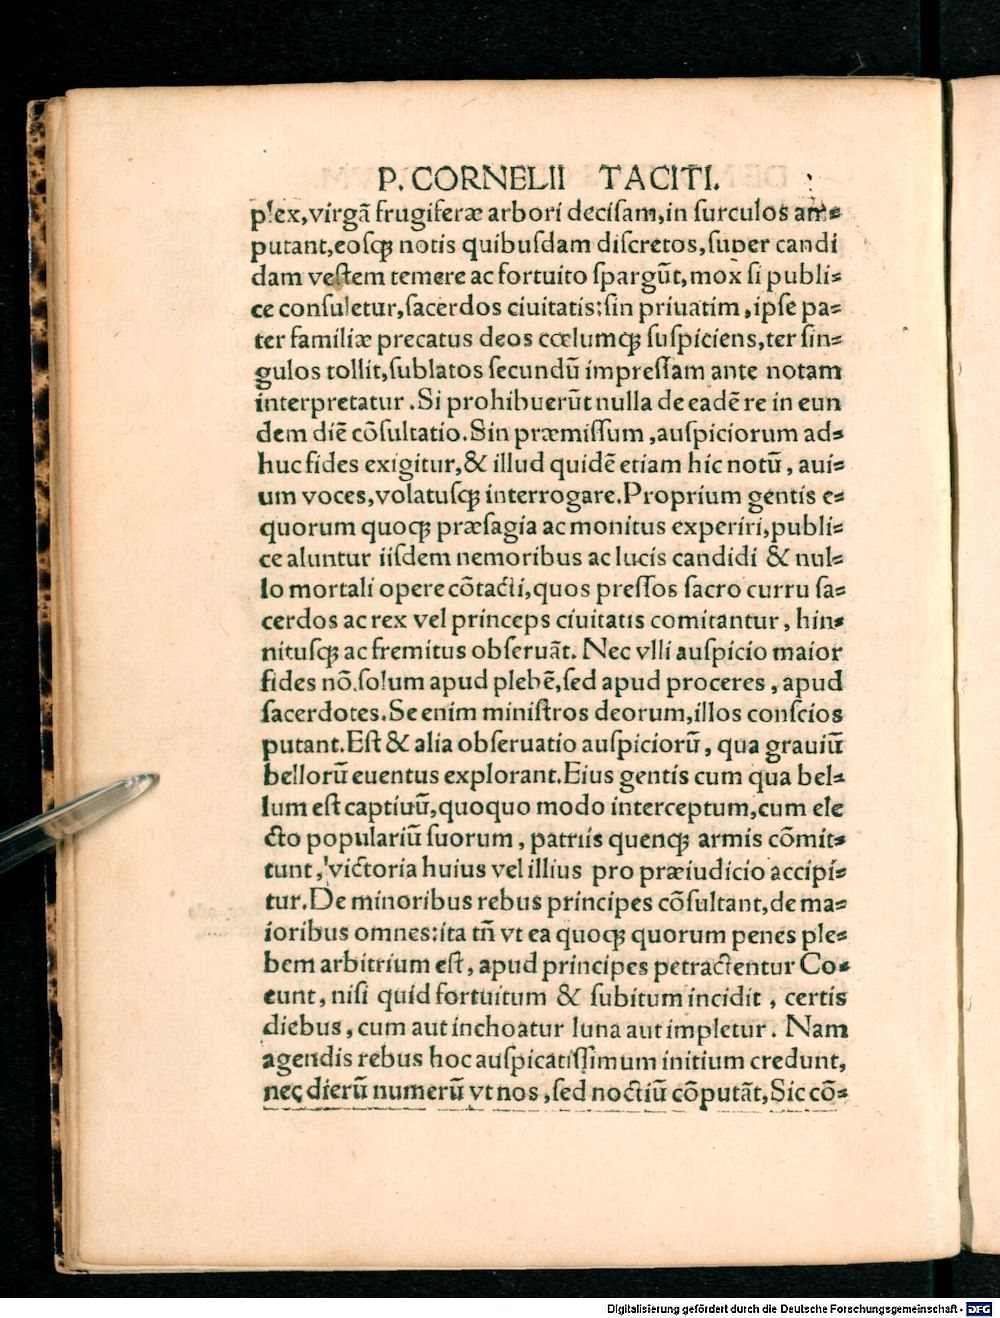 P. CORNELII TACITI.
plex, virgā frugiferæ arbori deciſam, in ſurculos am⸗
putant, eoſqꝫ notis quibuſdam diſcretos, ſuper candi
dam veſtem temere ac fortuito ſpargūt, mox ſi publi⸗
ce conſuletur, ſacerdos ciuitatis: ſin priuatim, ipſe pa⸗
ter familiæ precatus deos cœlumqꝫ ſuſpiciens, ter ſin⸗
gulos tollit, ſublatos ſecundū impreſſam ante notam
interpretatur. Si prohibuerūt nulla de eadē re in eun
dem diē cōſultatio. Sin præmiſſum, auſpiciorum ad⸗
huc fides exigitur, & illud quidē etiam hic notū, aui⸗
um voces, volatuſqꝫ interrogare. Proprium gentis e⸗
quorum quoqꝫ præſagia ac monitus experiri, publi⸗
ce aluntur iiſdem nemoribus ac lucis candidi & nul⸗
lo mortali opere cōtacti, quos preſſos ſacro curru ſa⸗
cerdos ac rex vel princeps ciuitatis comitantur, hin⸗
nituſqꝫ ac fremitus obſeruāt. Nec vlli auſpicio maior
fides nō ſolum apud plebē, ſed apud proceres, apud
ſacerdotes. Se enim miniſtros deorum, illos conſcios
putant. Eſt & alia obſeruatio auſpiciorū, qua grauiū
bellorū euentus explorant. Eius gentis cum qua bel⸗
lum eſt captiuū, quoquo modo interceptum, cum ele
cto populariū ſuorum, patriis quenqꝫ armis cōmit⸗
tunt, victoria huius vel illius pro præiudicio accipi⸗
tur. De minoribus rebus principes cōſultant, de ma⸗
ioribus omnes: ita tn̄ vt ea quoqꝫ quorum penes ple⸗
bem arbitrium eſt, apud principes petractentur Co⸗
eunt, niſi quid fortuitum & ſubitum incidit, certis
diebus, cum aut inchoatur luna aut impletur. Nam
agendis rebus hoc auſpicatiſſimum initium credunt,
nec dierū numerū vt nos, ſed noctiū cōputāt, Sic cō⸗
Digitalisierung gefördert durch die Deutsche Forschungsgemeinschaft - DFG